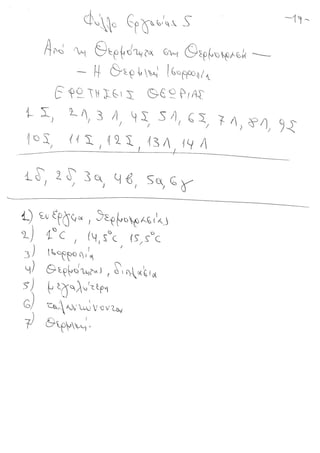 Φύλλο Εργασίας 5
-14-
Από τη Θερμότητα στη Θερμοκρασία -
- Η Θερμική Ισορροπία
ΕΡΩΤΗΣΕΙΣ ΘΕΩΡΙΑΣ
1Σ, 2Λ, 3Λ, 4Σ, 5Λ, 6Σ, 7Λ, 8Λ, 9Σ
10Σ, 11Σ, 12Σ, 13Λ, 14Λ
1δ, 2δ, 3α, 4β, 5α, 6γ
1) ενέργεια, θερμοκρασίας
2) 1°C, 14,5°C, 15,5°C
3) Ισορροπία
4) Θερμότητας, διπλάσια
5) μεγαλύτερη
6) ταλαντώνονται
7) Θερμική.